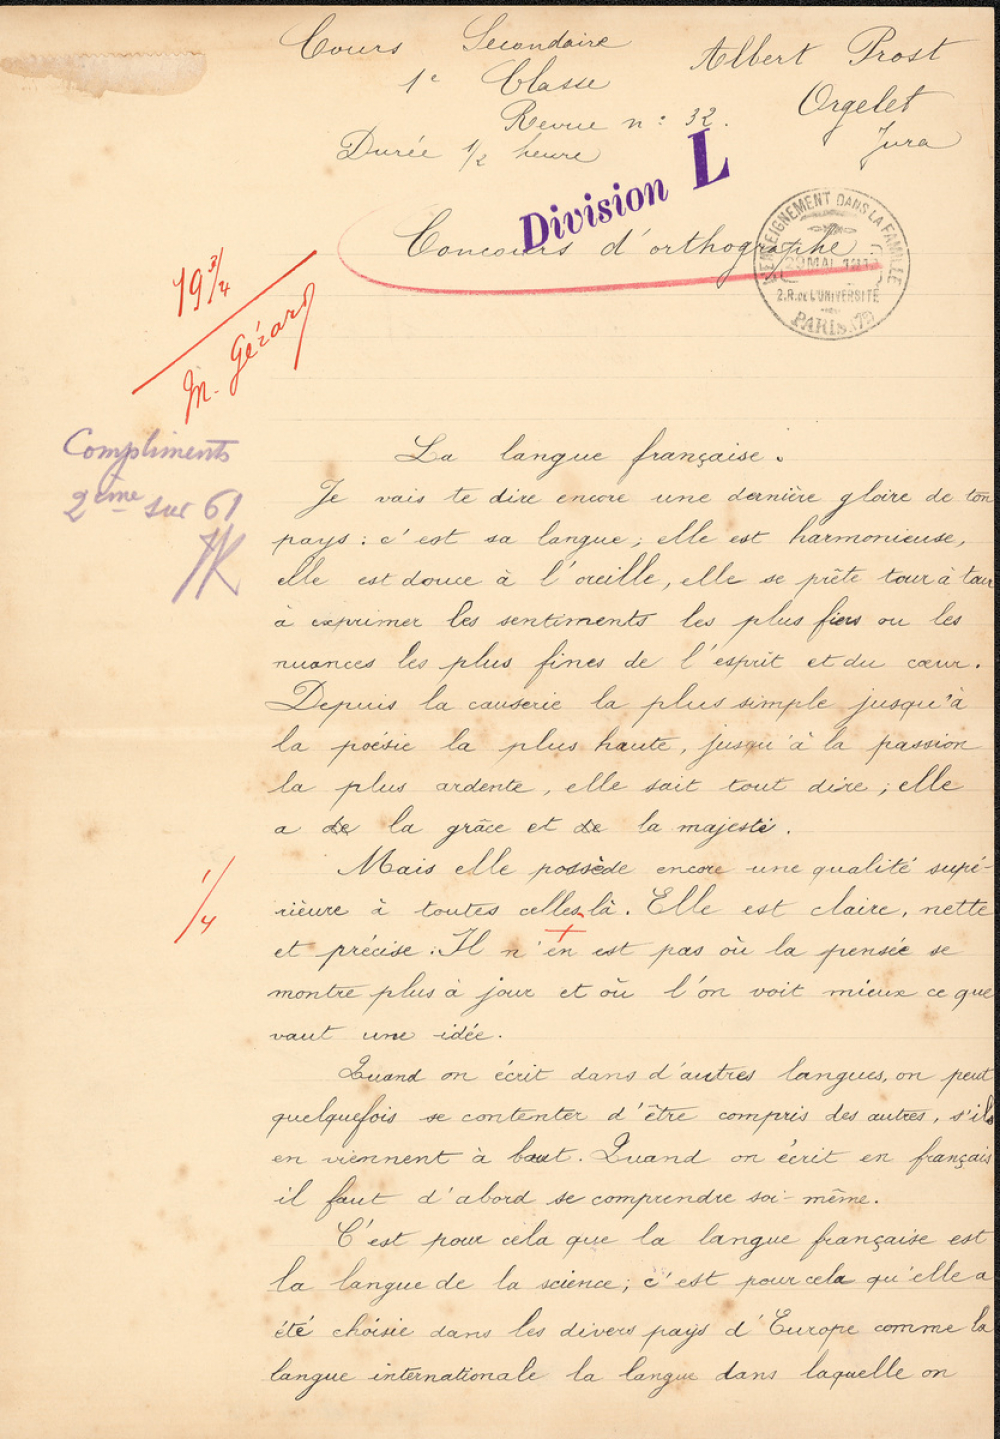 Cours Secondaire
Albert Prost
1e Classe
Orgelet
Revue n: 32.
Jura
Durée 1/2 heure
Division L
Concours d'orthographe.
L'ENSEIGNEMENT DANS LA FAMILLE
29 MAI
2.R.de L'UNIVERSITÉ
PARIS
19 3/4
M. Gérard
Compliments
2ème sur 61
La langue française.
Je vais te dire encore une dernière gloire de ton
pays : c'est sa langue ; elle est harmonieuse,
elle est douce à l'oreille, elle se prête tour à tour
à exprimer les sentiments les plus fiers ou les
nuances les plus fines de l'esprit et du cœur.
Depuis la causerie la plus simple jusqu'à
la poésie la plus haute, jusqu'à la passion
la plus ardente, elle sait tout dire ; elle
a de la grâce et de la majesté.
Mais elle possède encore une qualité supé-
rieure à toutes celles là. Elle est claire, nette
1/4
et précise. Il n'en est pas où la pensée se
montre plus à jour et où l'on voit mieux ce que
vaut une idée.
Quand on écrit dans d'autres langues, on peut
quelquefois se contenter d'être compris des autres, s'ils
en viennent à bout. Quand on écrit en français
il faut d'abord se comprendre soi-même.
C'est pour cela que la langue française est
la langue de la science ; c'est pour cela qu'elle a
été choisie dans les divers pays d'Europe comme la
langue internationale la langue dans laquelle on